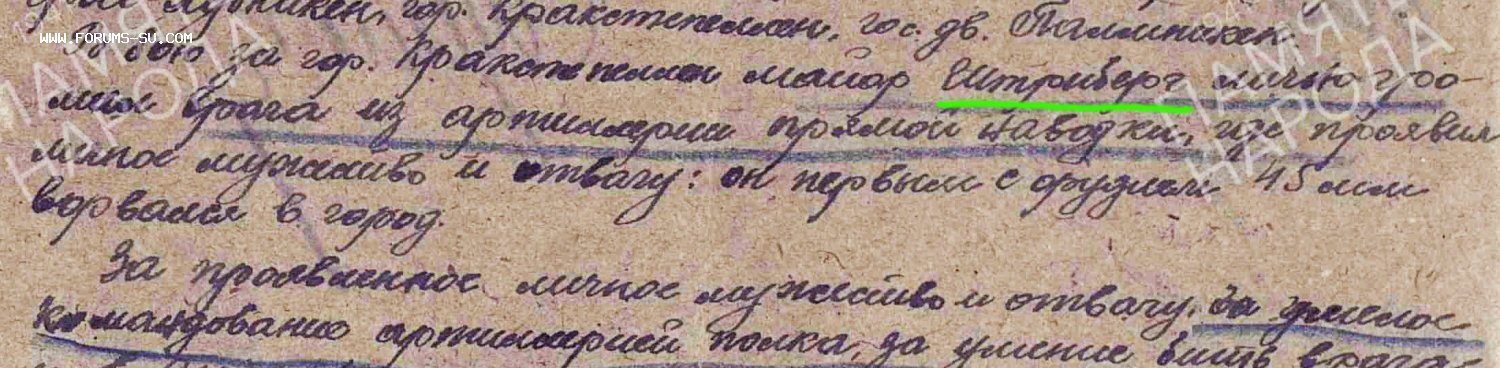 гор. Кракстепеллен, гос. дв. Пальмникен.
www.forums-su.com
В бою за гор. Кракстепеллен майор Штриберг лично гро-
мил врага из артиллерии прямой наводки, где проявил
личное мужество и отвагу: он первым с орудием 45 мм
ворвался в город.
За проявленное личное мужество и отвагу, за умелое
командование артиллерией полка, за умение бить врага-
ПАМЯТЬ
НАРОДА
ПАМЯТЬ
НАРОДА